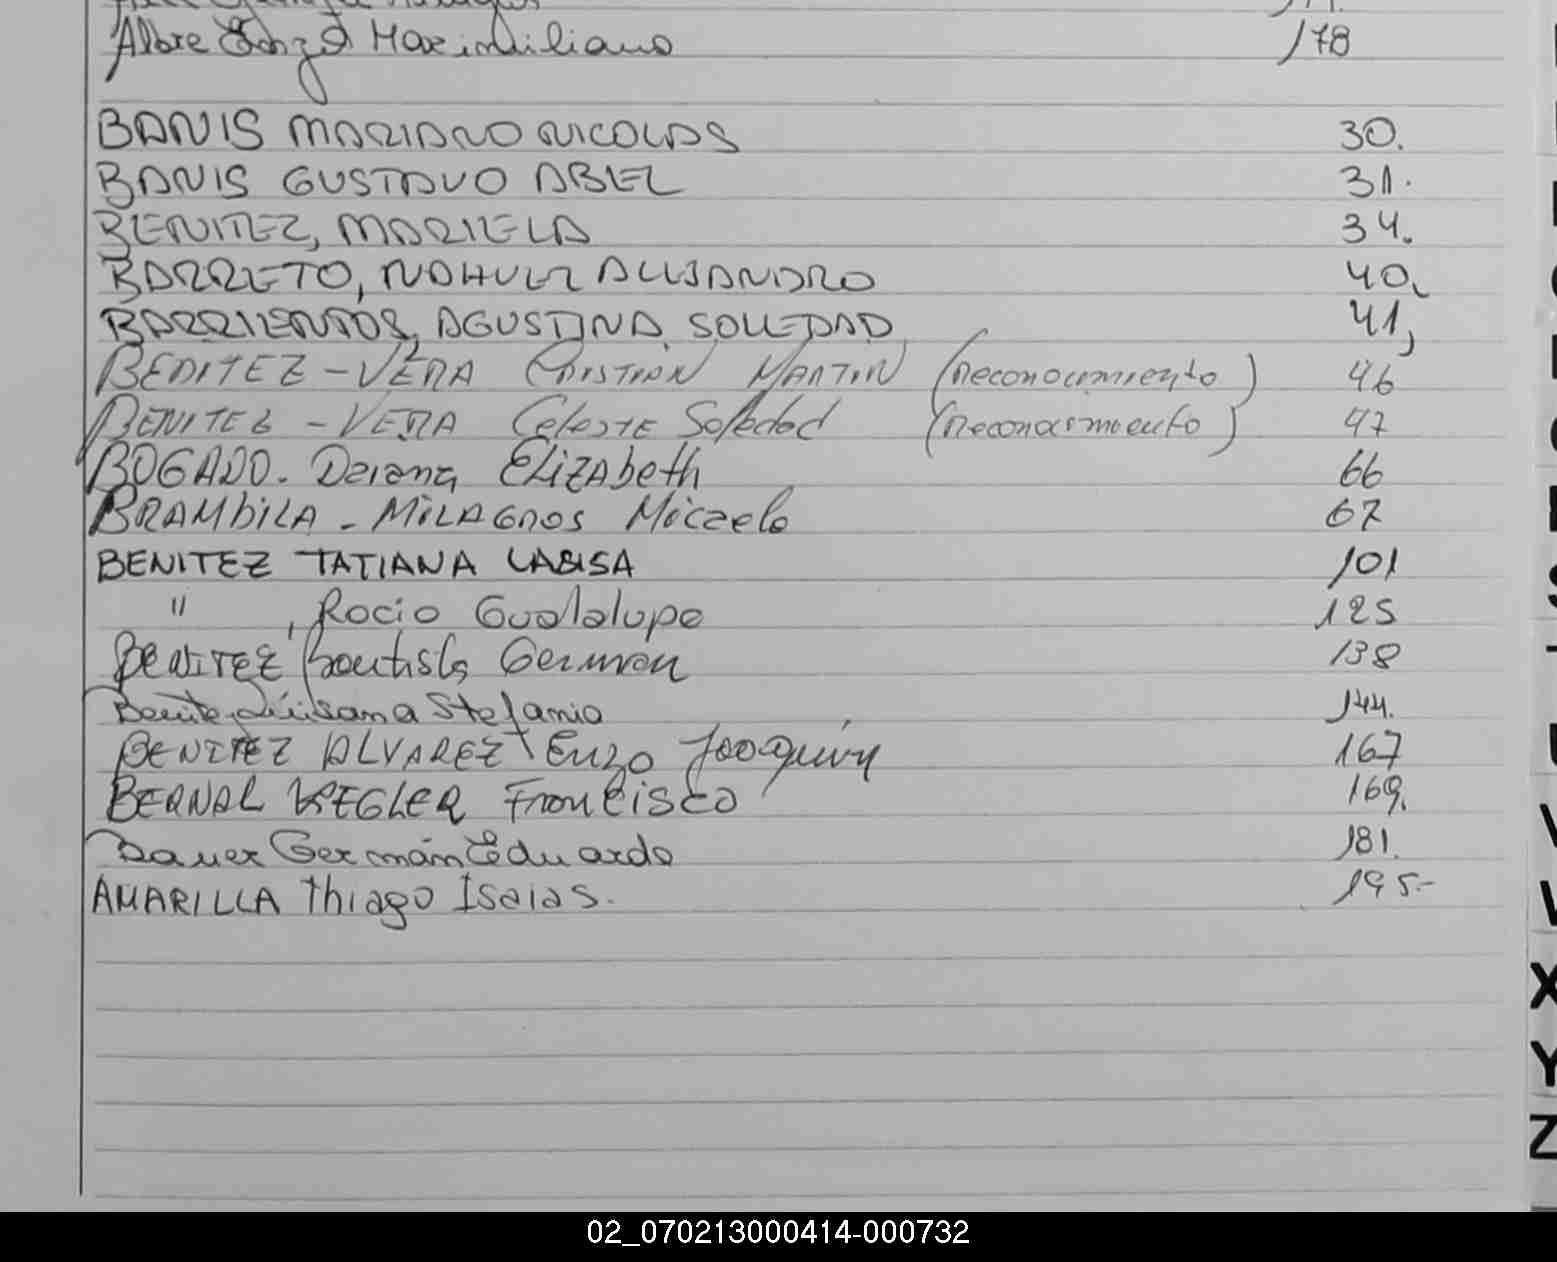 Albre Gonzá Maximiliano 178
BANIS MARIANO NICOLAS 30.
BANIS GUSTAVO ABEL 31.
BENITEZ, MARIELA 34.
BARRETO, NAHUEL ALEJANDRO 40,
BARRIENTOS, AGUSTINA SOLEDAD 41,
BENITEZ - VERA CRISTIAN MARTIN (reconocimiento) 46
BENITEZ - VERA Celeste Soledad (reconocimiento) 47
BOGADO. Daiana ELIZAbeth 66
BRAMbILA - MILAGROS Micaela 67
BENITEZ TATIANA 101
" , Rocio Guadalupe 125
BENITEZ Bautista German 138
Stefania 144.
BENITEZ ALVAREZ Enzo Joaquín 167
BERNAL KREGLER Francisco 169.
Bauer Germán Eduardo 181.
AMARILLA Thiago Isaias. 195.-
X
Y
Z
02_070213000414-000732